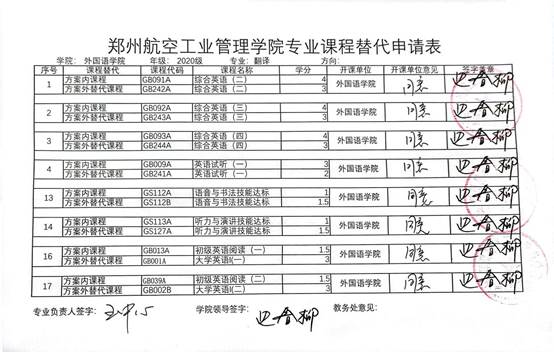 郑州航空工业管理学院专业课程替代申请表
学院： 外国语学院 年级： 2020级 专业：翻译 方向：
序号 课程替代 课程代码 课程名称 学分 开课单位 开课单位意见 签字盖章
1 方案内课程 GB091A 综合英语（二） 4 外国语学院 同意
方案外替代课程 GB242A 综合英语（二） 3
2 方案内课程 GB092A 综合英语（三） 4 外国语学院 同意
方案外替代课程 GB243A 综合英语（三） 3
3 方案内课程 GB093A 综合英语（四） 4 外国语学院 同意
方案外替代课程 GB244A 综合英语（四） 3
4 方案内课程 GB009A 英语试听（一） 3 外国语学院 同意
方案外替代课程 GB241A 英语试听（一） 2
13 方案内课程 GS112A 语音与书法技能达标 1 外国语学院 同意
方案外替代课程 GS112B 语音与书法技能达标 1.5
14 方案内课程 GS113A 听力与演讲技能达标 1 外国语学院 同意
方案外替代课程 GS127A 听力与演讲技能达标 1
16 方案内课程 GB013A 初级英语阅读（一） 1.5 外国语学院 同意
方案外替代课程 GB001A 大学英语I(一) 3
17 方案内课程 GB039A 初级英语阅读（二） 1.5 外国语学院 同意
方案外替代课程 GB002B 大学英语I(二) 3
专业负责人签字： 学院领导签字： 教务处意见：